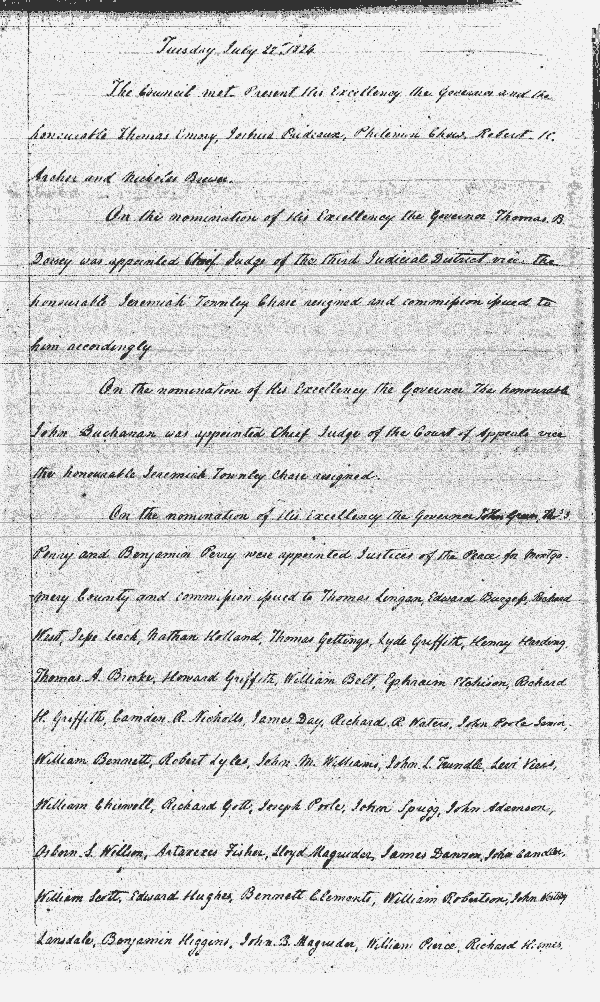 Tuesday July 27th 1824
The Council met. Present His Excellency the Governor and the
honourable Thomas Emory, Joshua Prideaux, Philemon Chew, Robert H.
Archer and Nicholas Brewer.
On the nomination of His Excellency the Governor Thomas B.
Dorsey was appointed Chief Judge of the third Judicial District vice the
honourable Jeremiah Townley Chase resigned and commission issued to
him accordingly
On the nomination of His Excellency the Governor The honourable
John Buchanan was appointed Chief Judge of the Court of Appeals vice
the honourable Jeremiah Townley Chase resigned.
On the nomination of His Excellency the Governor John Green
Perry and Benjamin Perry were appointed Justices of the Peace for Montgo-
mery County and commission issued to Thomas Lingan, Edward Burgess, Richard
West, Jesse Leach, Nathan Holland, Thomas Gettings, Lyde Griffith, Henry Harding,
Thomas A. Brooke, Howard Griffith, William Belt, Ephraim Etchison, Richard
H. Griffith, Camden R. Nicholls, James Day, Richard R. Waters, John Poole Senior,
William Bennett, Robert Lyles, John M. Williams, John L. Trundle, Levi Viers,
William Chiswell, Richard Gott, Joseph Poole, John Sprigg, John Adamson,
Osborn S. Willson, Artaxexes Fisher, Lloyd Magruder, James Dawson, John Candler,
William Scott, Edward Hughes, Bennett Clements, William Robertson, John
Lansdale, Benjamin Higgins, John B. Magruder, William Pierce, Richard Holmes